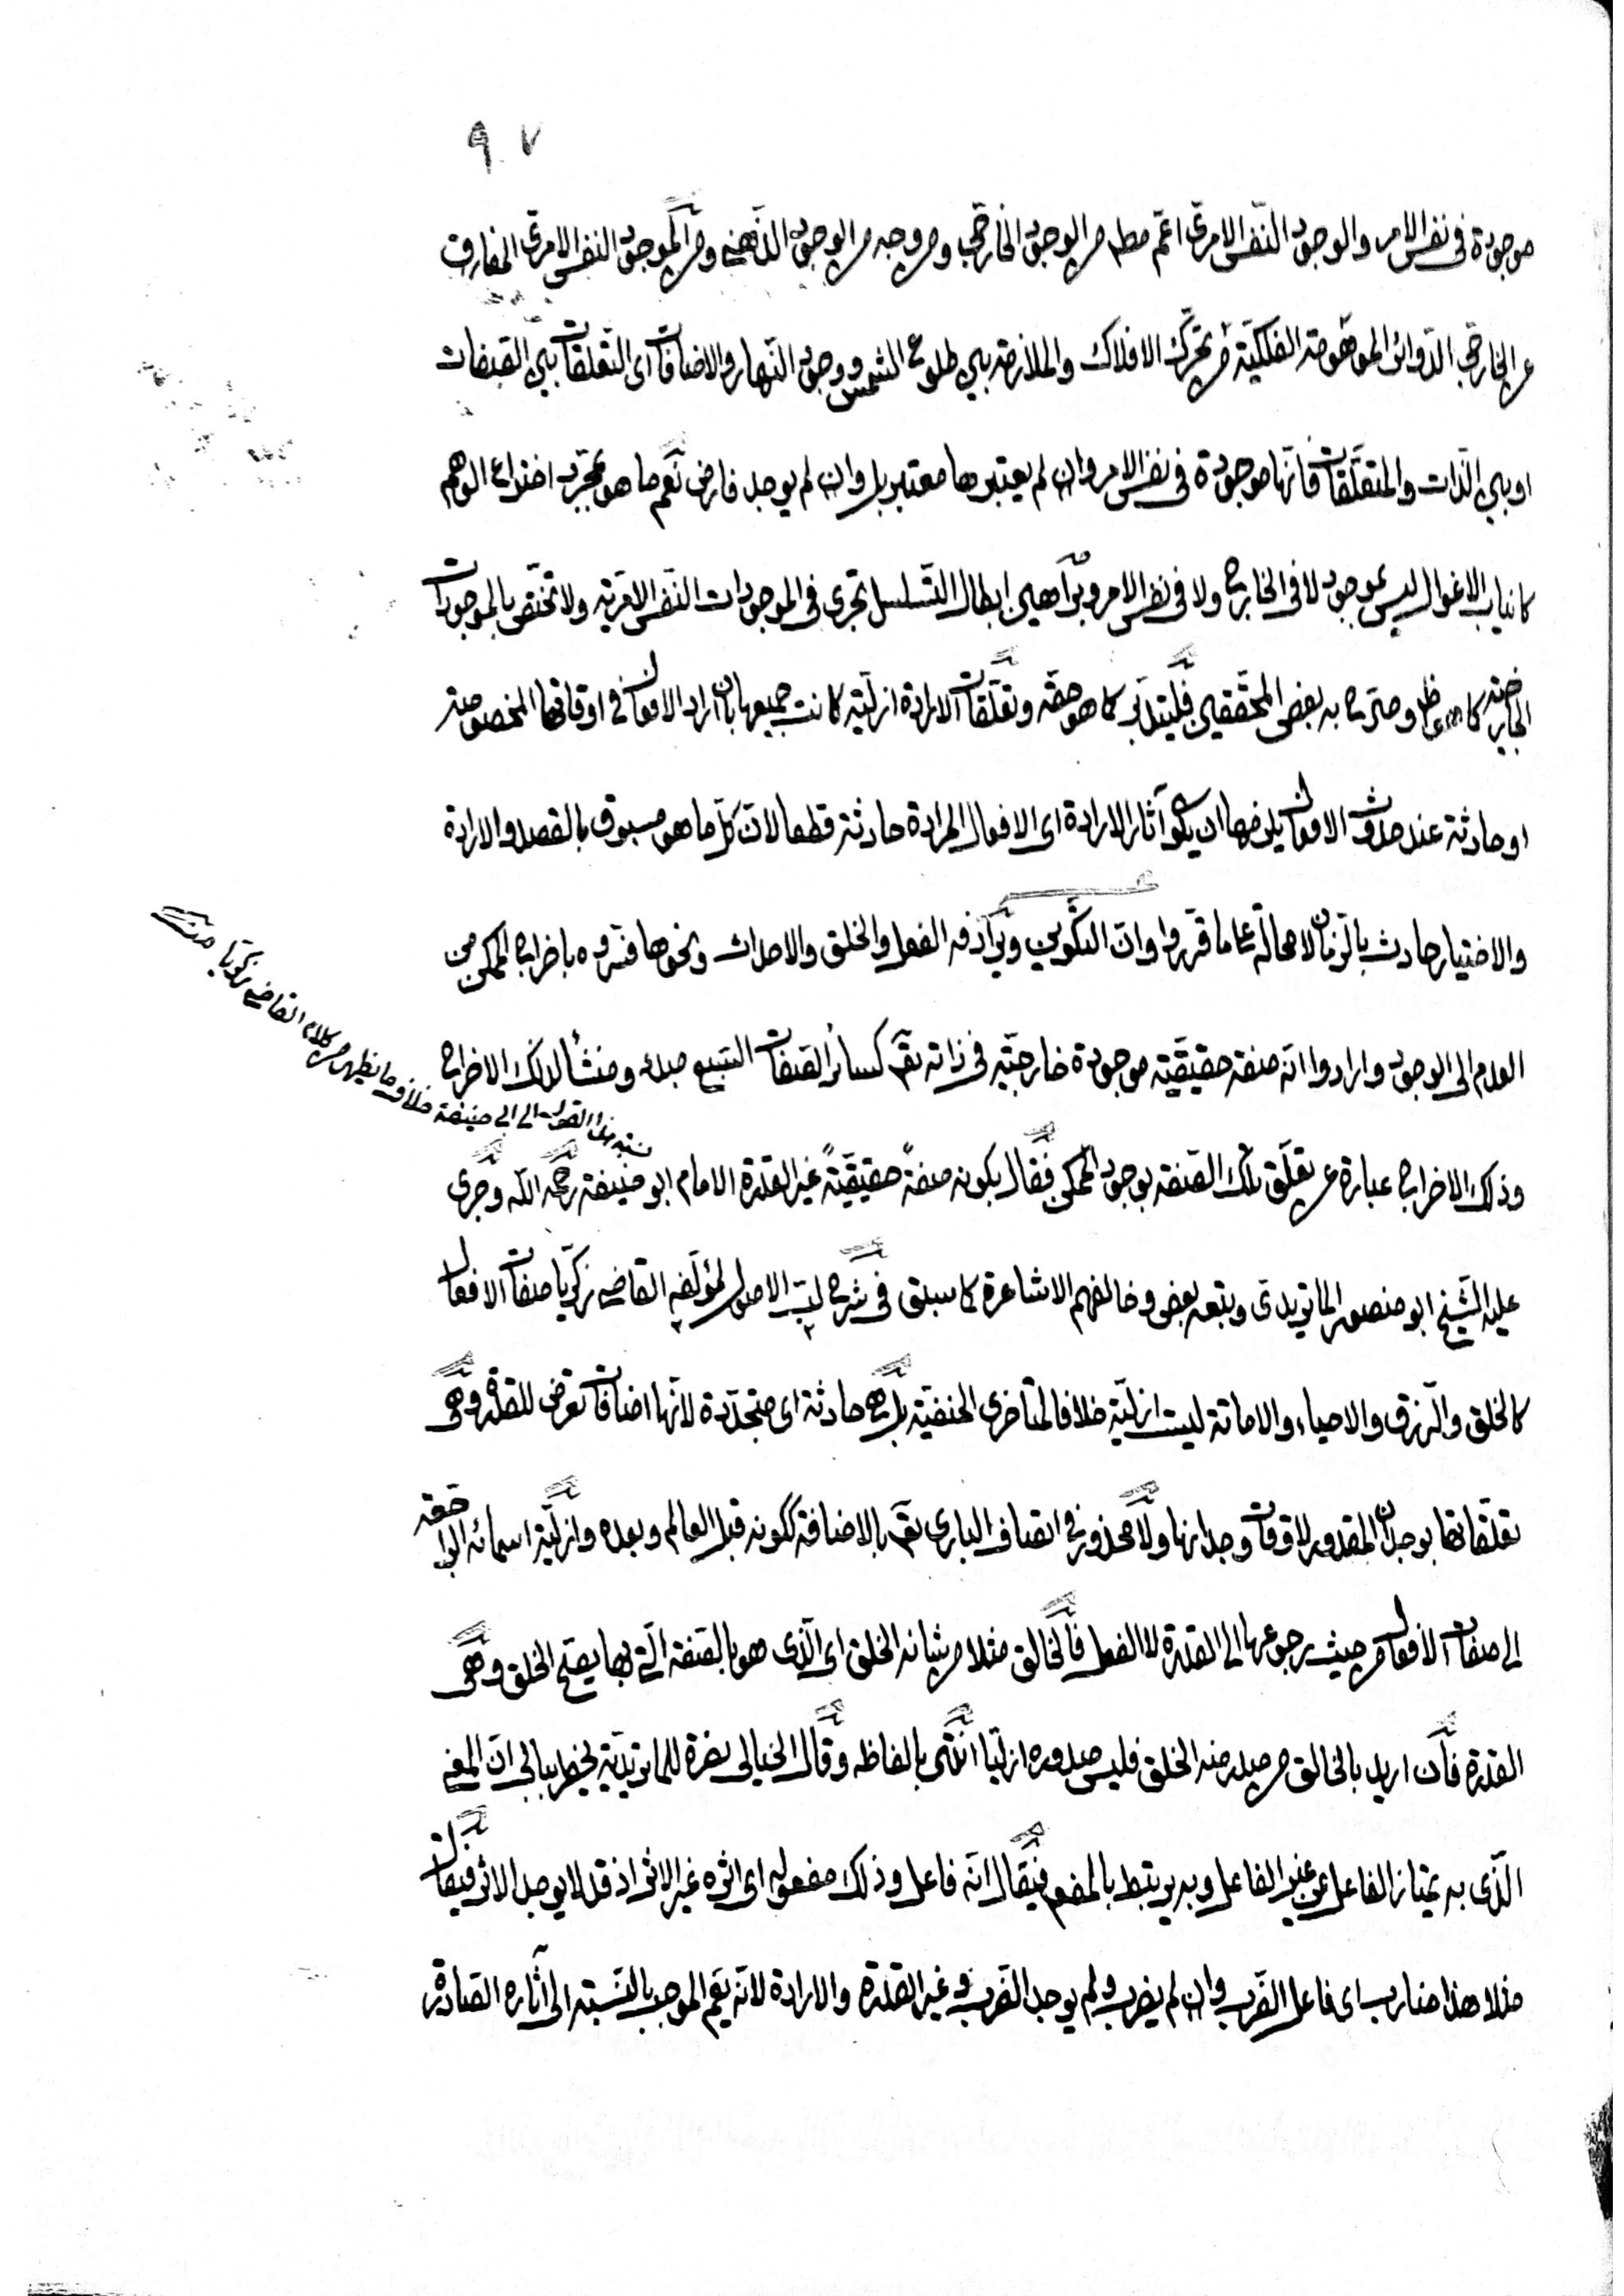 ٩٧
موجودة في نفس الامر والوجود النّفس الامرىّ اعمّ مطـ من الوجود الخارجىّ ومن وجه من الوجود الذّهنىّ ومن الموجود النفس الامرىّ المفارق
عن الخارجىّ الدّوائر الموهومة الفلكيّة من تحرّك الافلاك والملازمة بين طلوع الشمس ووجود النّهار والاضافات اى التعلّقات بين الصّفات
او بين الذّات والمتعلّقات فانّها موجودة في نفس الامر وان لم يعتبرها معتبر بل وان لم يوجد فارض نعم ما هو بمجرّد اختراع الوهم
كانياب الاغوال ليس بموجود لا في الخارج ولا في نفس الامر وبراهين ابطال التّسلسل تجرى في الموجودات النّفس الامريّة ولا تختصّ بالموجودات
الخارجيّة كما وصرّح به بعض المحقّقين فليتدبّر كما هو حقّه وتعلّقات الارادة ازليّة كانت جميعها بان اراد الافعال في اوقاتها المخصوصة
او حادثة عند حدوث الافعال يلزمها ان يكون آثار الارادة اى الافعال المرادة حادثة قطعا لانّ كلّ ما هو مسبوق بالقصد والارادة
والاختيار حادث بالزّمان لا محالة على ما قرّروا وانّ التكوين ويرادفه الفعل والخلق والاحداث ونحوها فسّروه باخراج الممكن من
العدم الى الوجود وارادوا انّه صفة حقيقيّة موجودة خارجيّة في ذاته تعـ كسائر الصّفات السّبع مبدء ومنشأ لذلك الاخراج
وذلك الاخراج عبارة عن تعلّق تلك الصّفة بوجود الممكن فقال بكونه صفةً حقيقيّةً غير القدرة الامام ابو حنيفة رحمه الله وجرى
نسبة هذا القول الى ابى حنيفة خلاف ما يظهر من كلام القاضى زكريّا منه
عليه الشّيخ ابو منصور الماتريدى وتبعه بعض وخالفهم الاشاعرة كما سبق في شرح لبّ الاصول لمؤلّفه القاضى زكريّا صفات الافعال
كالخلق والرّزق والاحياء والاماتة ليست ازليّة خلافا لمتأخرى الحنفيّة بل هى حادثة اى متجدّدة لانّها اضافات تعرض للقدرة وهى
تعلّقاتها بوجدان المقدور لاوقات وجدانها ولا محذور في اتصاف البارى تعـ بالاضافة ككونه قبل العالم وبعده وازليّة اسمائه الراجعة
الى صفات الافعال من حيث رجوعها الى القدرة لا الفعل فالخالق مثلا من شانه الخلق اى الّذى هو بالصّفة الّتى بها يصحّ الخلق وهى
القدرة فان اريد بالخالق من صدر منه الخلق فليس صدوره ازليّا انتهى بالفاظه وقال الخيالى نصرة للماتريديّة يخطر ببالى انّ المعنى
الّذى به يمتاز الفاعل عن غير الفاعل وبه يرتبط بالمفعول فيقال انّه فاعل وذلك مفعوله اى اثره غير الاثر اذ قد لا يوجد الاثر فيقال
مثلا هذا ضارب اى فاعل الضّرب وان لم يضرب ولم يوجد الضّرب وغير القدرة والارادة لانّه يعمّ الموجب بالنّسبة الى آثاره الصّادرة